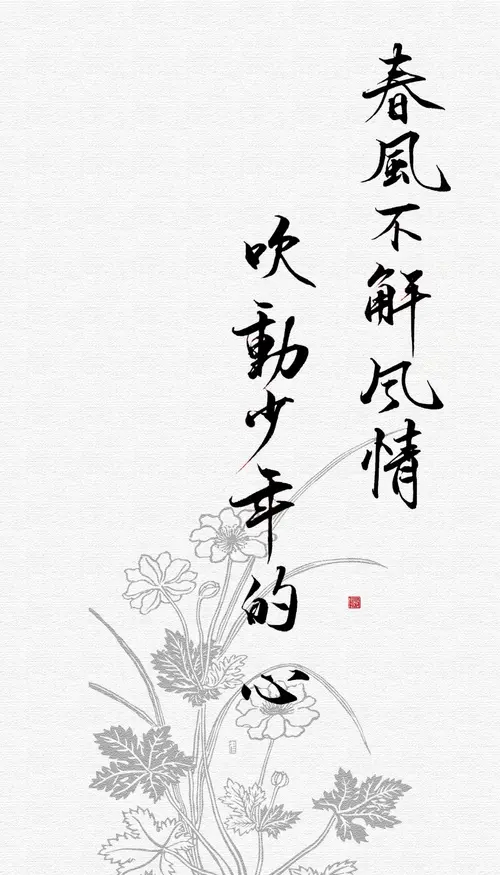 春風不解风情
吹動少年的心